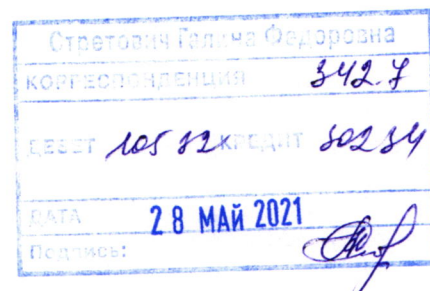 Стретович Галина Федоровна
КОРРЕСПОНДЕНЦИЯ 342.7
ДЕБЕТ 105 32 КРЕДИТ 302 34
ДАТА 28 МАЙ 2021
Подпись: